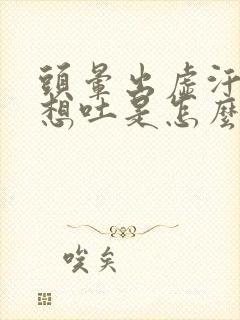 頭暈出虛汗
想吐是怎麼
唉矣